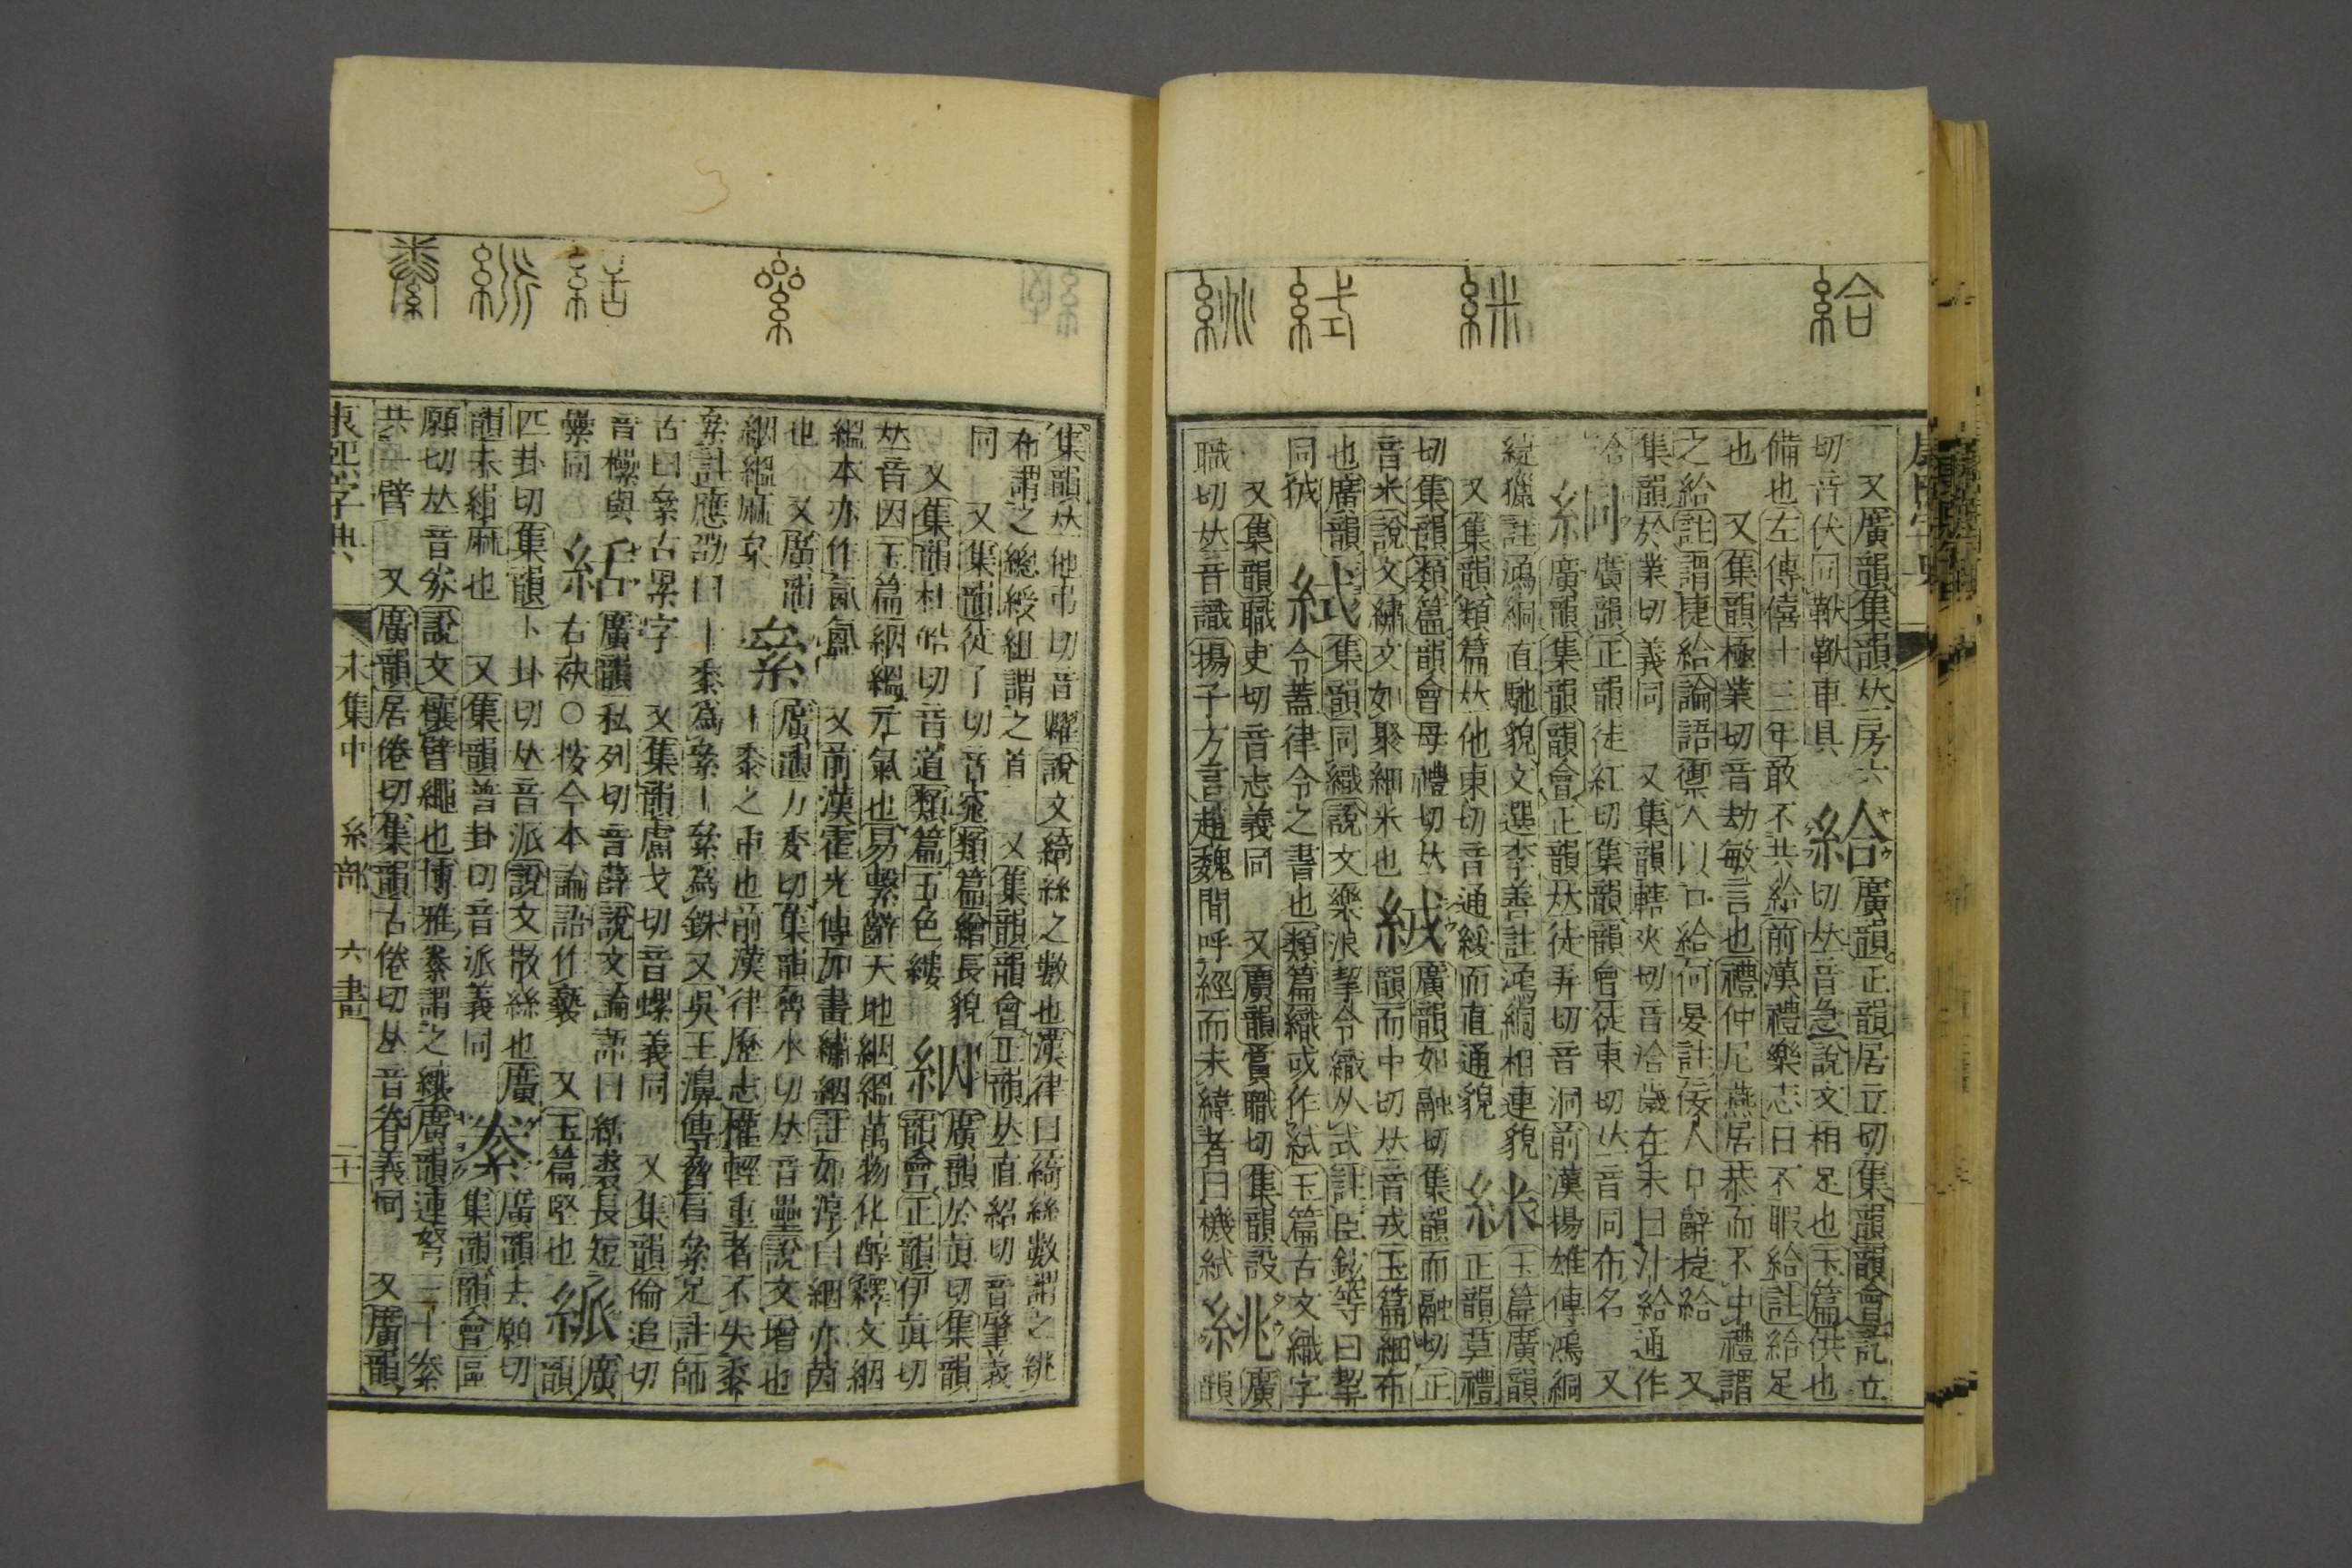 給
絑
絬
絩
又廣韻集韻𠀤房六
切音伏同鞴鞴車具
給廣韻正韻居立切集韻韻會訖立
切𠀤音急說文相足也玉篇供也
備也左傳僖十三年敢不共給前漢禮樂志日不暇給註給足
也 又集韻極業切音劫敏言也禮仲尼燕居恭而不中禮謂
之給註謂捷給論語禦人以口給何晏註佞人口辭捷給 又
集韻於業切義同 又集韻轄夾切音洽歲在未曰汁給通作
洽
絧廣韻正韻徒紅切集韻韻會徒東切𠀤音同布名 又
廣韻集韻韻會正韻𠀤徒弄切音洞前漢揚雄傳鴻絧
緁獵註鴻絧直馳貌文選李善註鴻絧相連貌
又集韻類篇𠀤他東切音通緩而直通貌
絲玉篇廣韻
正韻莫禮
切集韻類篇韻會母禮切𠀤
音米說文繡文如聚細米也
絨廣韻如融切集韻而融切正
韻而中切𠀤音戎玉篇細布
也廣韻
同㺿
絬集韻同織說文樂浪挈令織从式註臣鉉等曰挈
令蓋律令之書也類篇織或作絬玉篇古文織字
又集韻職吏切音志義同 又廣韻賞職切集韻設
職切𠀤音識揚子方言趙魏閒呼經而未緯者曰機絬
絩廣
韻
集韻𠀤他弔切音糶說文綺絲之數也漢律曰綺絲數謂之絩
布謂之總綬組謂之首 又集韻韻會正韻𠀤直紹切音肇義
同 又集韻徒了切音窕類篇繒長貌
又集韻杜皓切音道類篇五色縷
絪廣韻於眞切集韻
韻會正韻伊眞切
𠀤音因玉篇絪縕元氣也易繫辭天地絪縕萬物化醇釋文絪
縕本亦作氤氳 又前漢霍光傳加畫繡絪註如淳曰絪亦茵
也 又廣韻
絪縕麻枲
絫廣韻力委切集韻魯水切𠀤音壘說文增也
十黍之重也前漢律歷志權輕重者不失黍
絫註應劭曰十黍爲絫十絫爲銖又吳王濞傳脅肩絫足註師
古曰絫古累字 又集韻盧戈切音螺義同 又集韻倫追切
音欙與
纍同
絬廣韻私列切音薛說文論語曰絬裘長短
右袂○按今本論語作褻 又玉篇堅也
紙廣
韻
匹卦切集韻卜卦切𠀤音派說文散絲也廣
韻未緝麻也 又集韻普卦切音派義同
絭廣韻去願切
集韻韻會區
願切𠀤音券說文攘臂繩也博雅絭謂之纕廣韻連弩三十絭
共一臂 又廣韻居倦切集韻古倦切𠀤音眷義同 又廣韻
康熙字典 未集中 糸部 六畫 二十